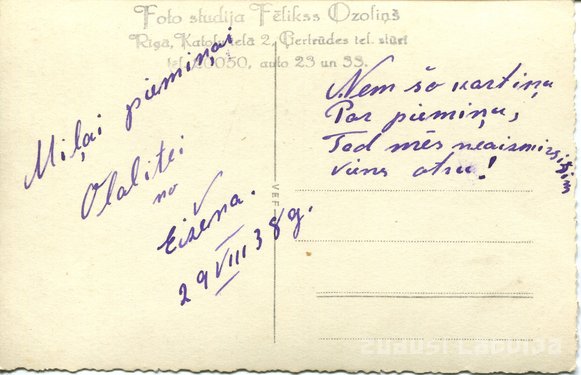 Foto studija Fēlikss Ozoliņš
Rīgā, Katoļu ielā 2, Ģertrūdes tel. stūrī
auto 23 un 33.
Miļai piemiņai
Olalitei
no
Eižena.
29 VIII 38 g.
VEF
Ņem šo kartiņu
Par piemiņu,
Tad mēs neaizmirsīsim
viens otru!
zudusi Latvija